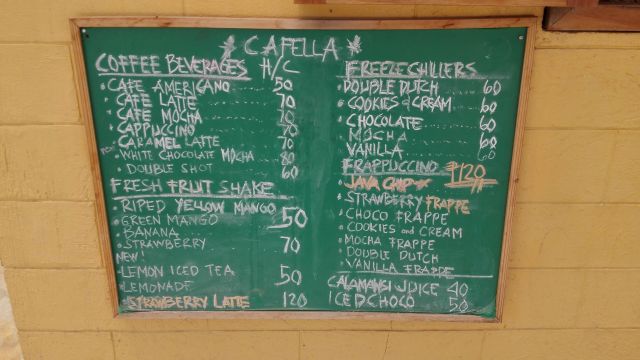 * CAFELLA *
COFFEE BEVERAGES H/C
• CAFE AMERICANO 50
• CAFE LATTE 70
• CAFE MOCHA 70
• CAPPUCCINO 70
• CARAMEL LATTE 70
• WHITE CHOCOLATE MOCHA 80
• DOUBLE SHOT 60
FRESH FRUIT SHAKE
• RIPED YELLOW MANGO
• GREEN MANGO 50
• BANANA
• STRAWBERRY 70
NEW!
• LEMON ICED TEA 50
• LEMONADE
• STRAWBERRY LATTE 120
FREEZE CHILLERS
• DOUBLE DUTCH 60
• COOKIES & CREAM 60
• CHOCOLATE 60
• MOCHA 60
• VANILLA 60
FRAPPUCCINO ₱120
• JAVA CHIP *
• STRAWBERRY FRAPPE
• CHOCO FRAPPE
• COOKIES and CREAM
• MOCHA FRAPPE
• DOUBLE DUTCH
• VANILLA FRAPPE
CALAMANSI JUICE 40
ICED CHOCO 50